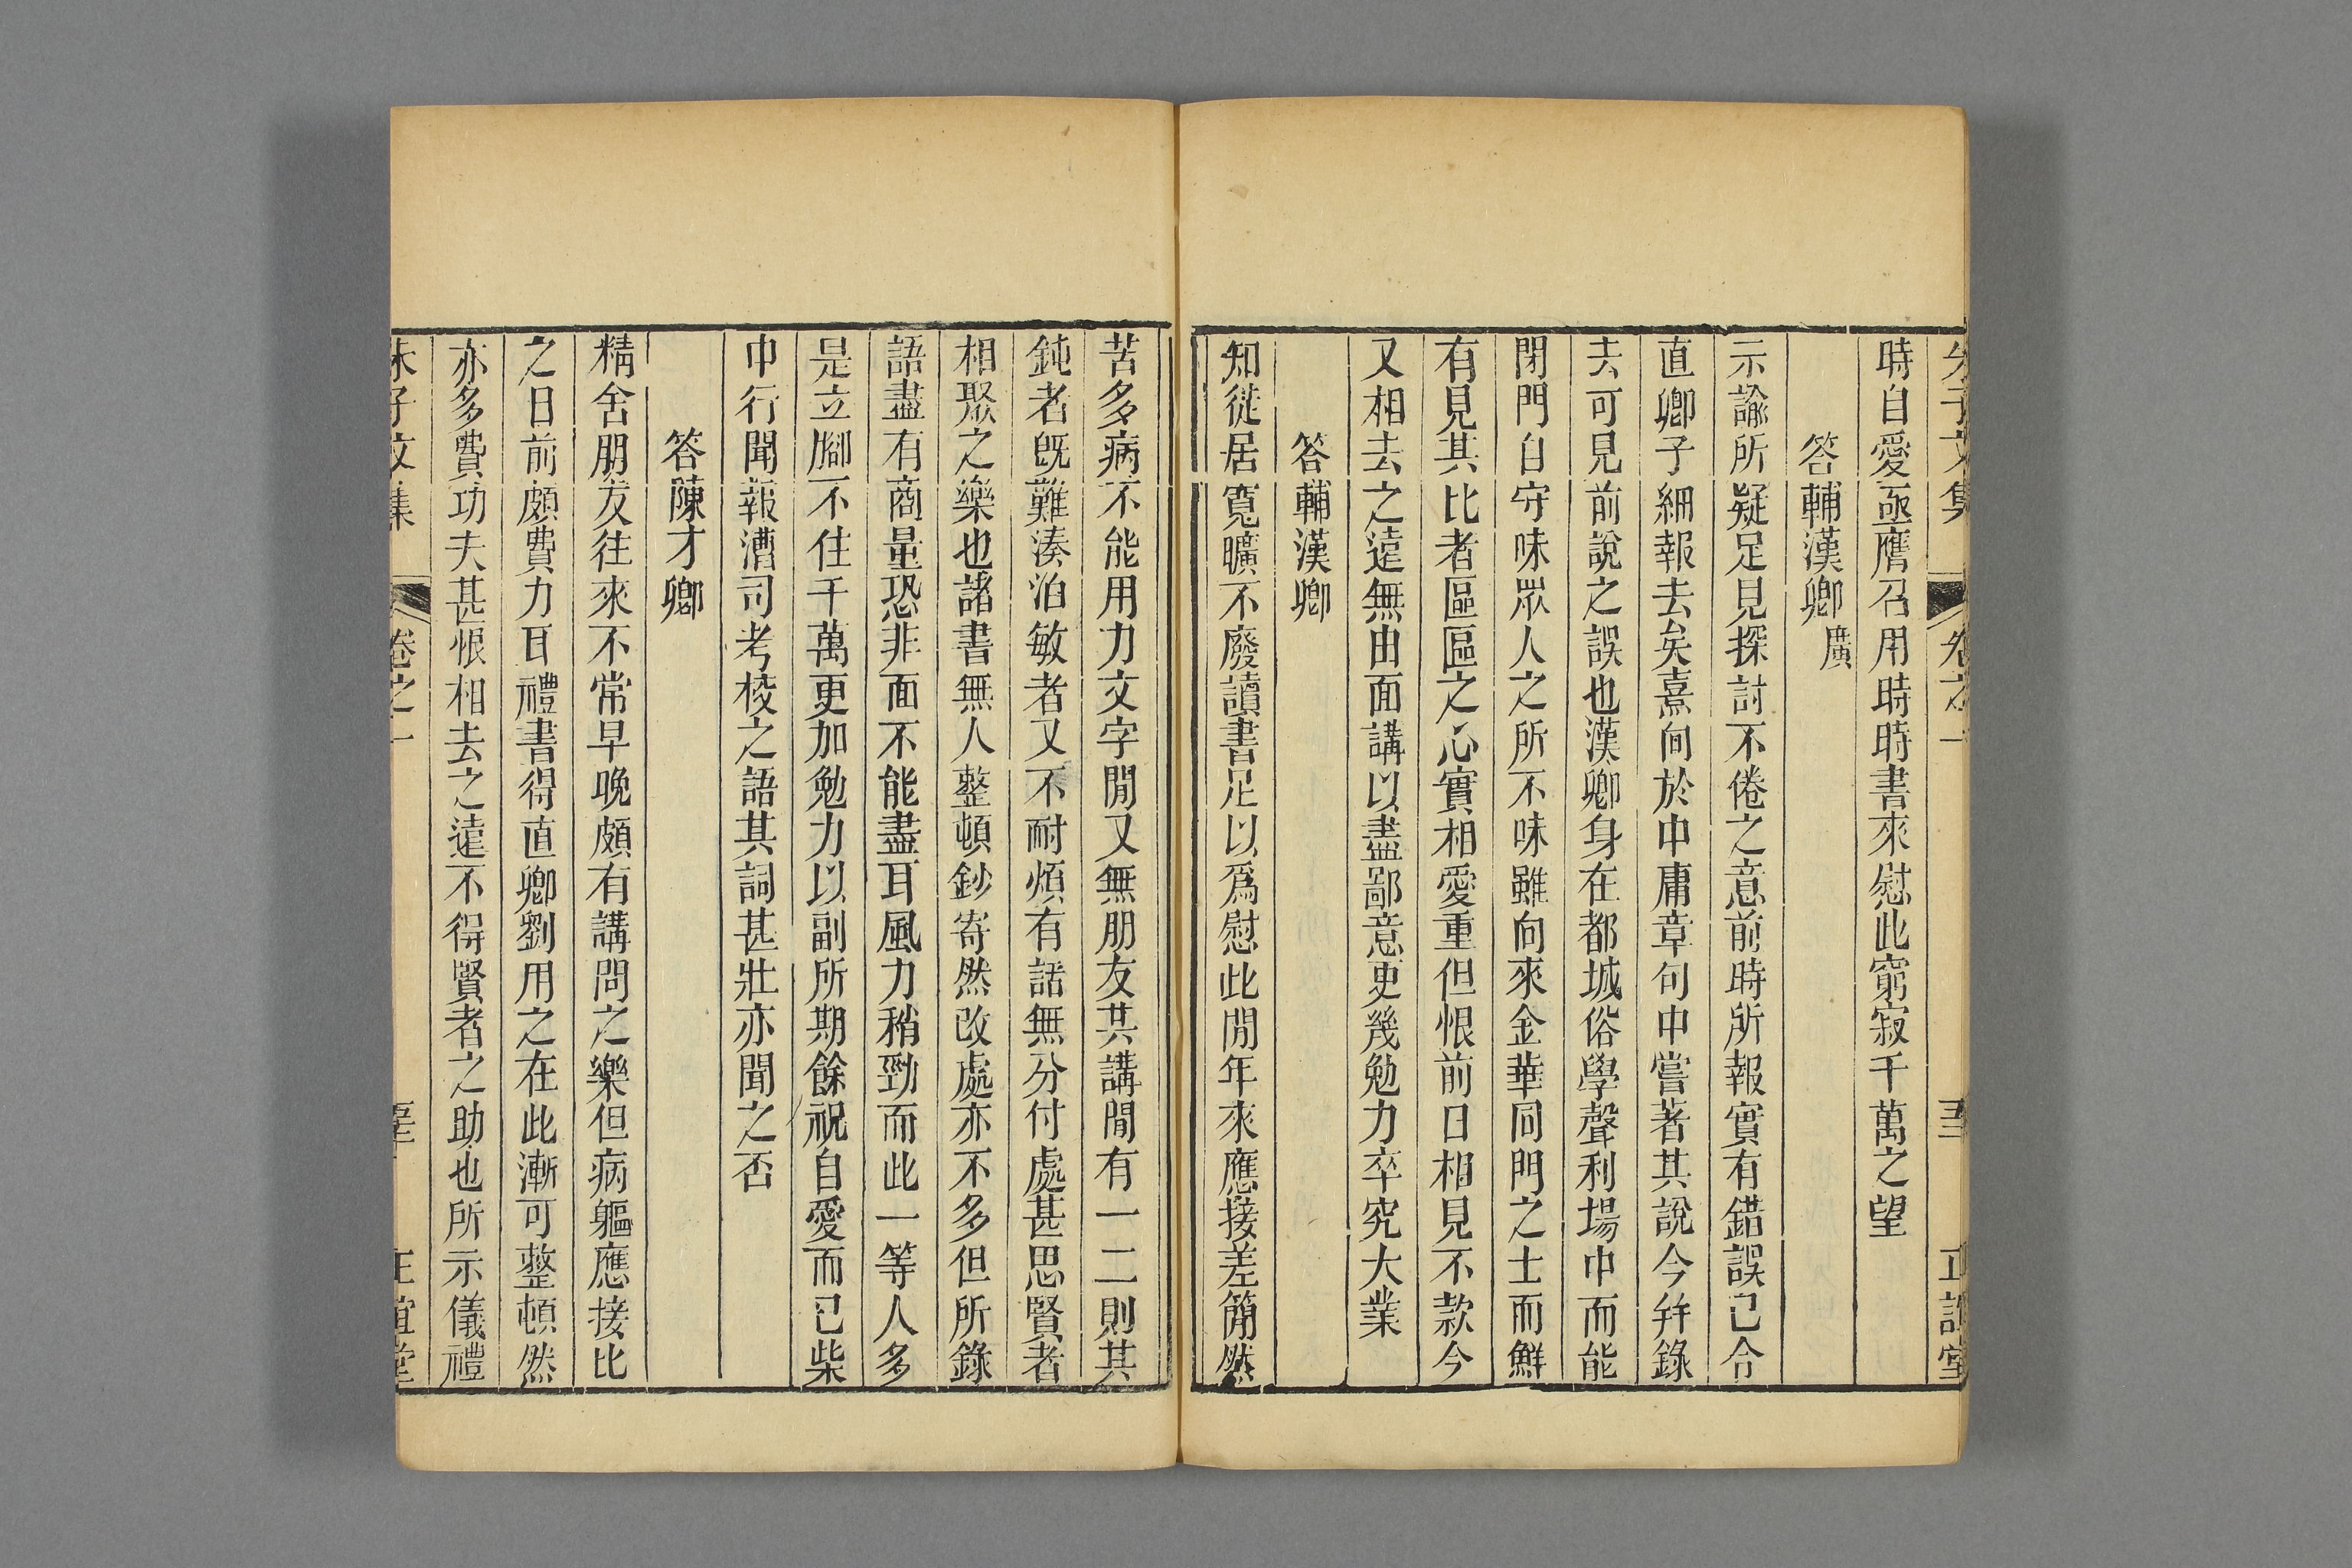 朱子文集 卷之一 正誼堂
時自愛亟膺召用時時書來慰此窮寂千萬之望
答輔漢卿廣
示諭所疑足見探討不倦之意前時所報實有錯誤已令
直卿子細報去矣熹向於中庸章句中嘗著其說今幷錄
去可見前說之誤也漢卿身在都城俗學聲利場中而能
閉門自守味眾人之所不味雖向來金華同門之士而鮮
有見其比者區區之心實相愛重但恨前日相見不款今
又相去之遠無由面講以盡鄙意更幾勉力卒究大業
答輔漢卿
知徙居寬曠不廢讀書足以爲慰此閒年來應接差簡然
苦多病不能用力文字閒又無朋友共講閒有一二則其
鈍者旣難湊泊敏者又不耐煩有話無分付處甚思賢者
相聚之樂也諸書無人整頓鈔寄然改處亦不多但所錄
語盡有商量恐非面不能盡耳風力稍勁而此一等人多
是立腳不住千萬更加勉力以副所期餘祝自愛而已柴
中行聞報漕司考校之語其詞甚壯亦聞之否
答陳才卿
精舍朋友往來不常早晚頗有講問之樂但病軀應接比
之日前頗費力耳禮書得直卿劉用之在此漸可整頓然
亦多費功夫甚恨相去之遠不得賢者之助也所示儀禮
朱子文集 卷之一 正誼堂